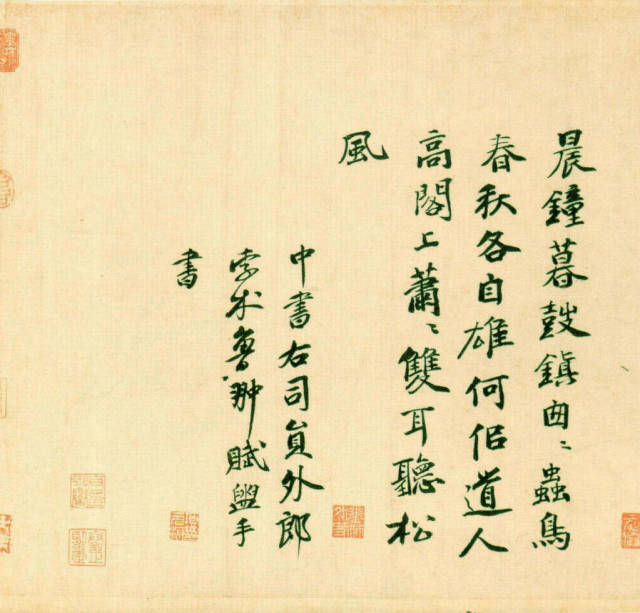 晨鐘暮鼓鎮囪〻蟲鳥
春秋各自雄何佀道人
高閣上蕭〻雙耳聽松
風
中書右司員外郎
孛术魯翀賦盥手
書